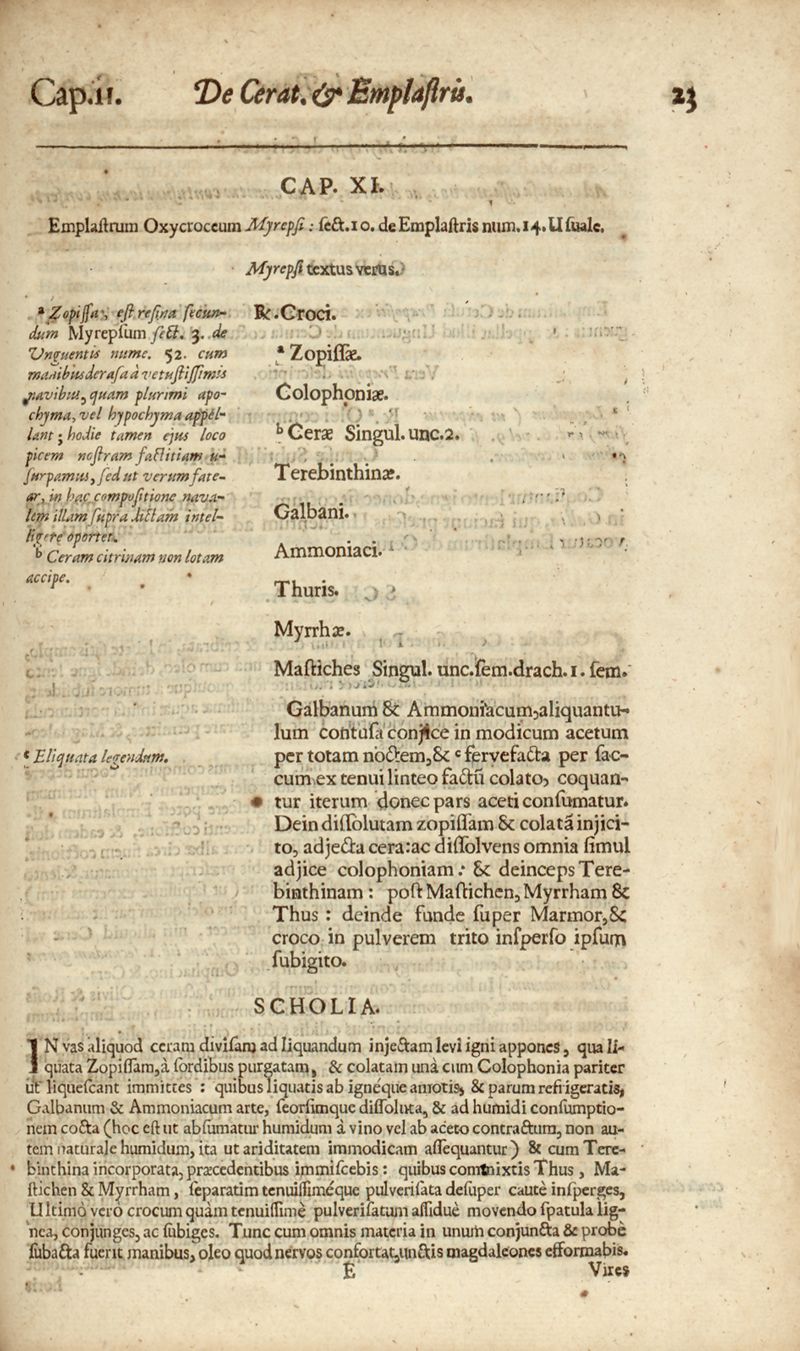 Cap.11. De Cerat. & Emplaſtris. 23
CAP. XI.
Emplaſtrum Oxycroceum Myrepſi : ſect.10. de Emplaſtris num.14. Uſuale.
Myrepſi textus verus.
ᵃ Zopiſſa, eſt reſina ſecun-
dum Myrepſum ſect. 3. de
Unguentis nume. 52. cum
manibus deraſa à vetuſtiſſimis
navibus, quam plurimi apo-
chyma, vel hypochyma appel-
lant ; hodie tamen ejus loco
picem noſtram factitiam u-
ſurpamus, ſed ut verum fate-
ar, in hac compoſitione nava-
lem illam ſupra dictam intel-
ligere oportet.
ᵇ Ceram citrinam non lotam
accipe.
℞. Croci.
ᵃ Zopiſſæ.
Colophoniæ.
ᵇ Ceræ Singul. unc.2.
Terebinthinæ.
Galbani.
Ammoniaci.
Thuris.
Myrrhæ.
Maſtiches Singul. unc.ſem.drach.1. ſem.
ᶜ Eliquata legendum.
Galbanum & Ammoniacum,aliquantu-
lum contuſa conjice in modicum acetum
per totam noctem,& ᶜ fervefacta per ſac-
cum ex tenui linteo factũ colato, coquan-
tur iterum donec pars aceti conſumatur.
Dein diſſolutam zopiſſam & colatã injici-
to, adjecta cera:ac diſſolvens omnia ſimul
adjice colophoniam : & deinceps Tere-
binthinam : poſt Maſtichen, Myrrham &
Thus : deinde funde ſuper Marmor,&
croco in pulverem trito inſperſo ipſum
ſubigito.
SCHOLIA.
IN vas aliquod ceram diviſam ad liquandum injectam levi igni appones, qua li-
quata Zopiſſam,à ſordibus purgatam, & colatam unà cum Colophonia pariter
ut liqueſcant immittes : quibus liquatis ab igneque amotis, & parum refrigeratis,
Galbanum & Ammoniacum arte, ſeorſimque diſſoluta, & ad humidi conſumptio-
nem cocta (hoc eſt ut abſumatur humidum à vino vel ab aceto contractum, non au-
tem naturale humidum, ita ut ariditatem immodicam aſſequantur) & cum Tere-
binthina incorporata, præcedentibus immiſcebis : quibus commixtis Thus, Ma-
ſtichen & Myrrham, ſeparatim tenuiſſiméque pulveriſata deſuper cautè inſperges,
Ultimò verò crocum quàm tenuiſſimè pulveriſatum aſſiduè movendo ſpatula lig-
nea, conjunges, ac ſubiges. Tunc cum omnis materia in unum conjuncta & probè
ſubacta fuerit manibus, oleo quod nervos confortat,unctis magdaleones efformabis.
E Vires